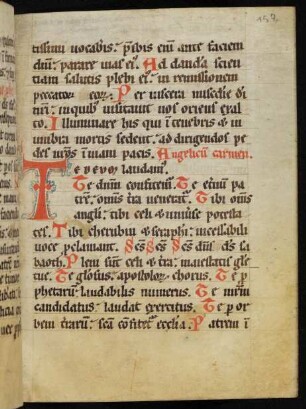 tissimi uocabis. p̄ibis eni͞m ante faciem
dn͞i: parare uias ei᷒. Ad dandā scien
tiam salutis plebi ei᷒: in remissionem
peccator eoꝝ. Per uiscera misc͞die di
n͞ri: in quib᷒ uisitauit nos oriens ex al
to. Illuminare his qui i tenebris & in
umbra mortis sedent: ad dirigendos pe
des n͞ros i uiam pacis. Angelicū carmen.
Te deum laudam᷒.
Te dn͞m confitem᷒. Te et͞nū pa
trē: om͞is t͞ra uenerat᷒. Tibi om͞s
angl͞i: tibi celi & uniu͞se potesta
tes. Tibi cherubin & seraphi: incessabili
uoce p̄clamant. Sc͞s Sc͞s Sc͞s dn͞s ds͞ sa
baoth. Pleni sunt celi & t͞ra: maiestatis glē
tue. Te gl͞osus: apostoloꝝ chorus. Te p̄
phetarū: laudabilis numerus. Te mr͞m
candidatus: laudat exercitus. Te p̄ or
bem t͞rarū: sc͞a c͞ofitet᷒ eccl͞ia. Patrem i